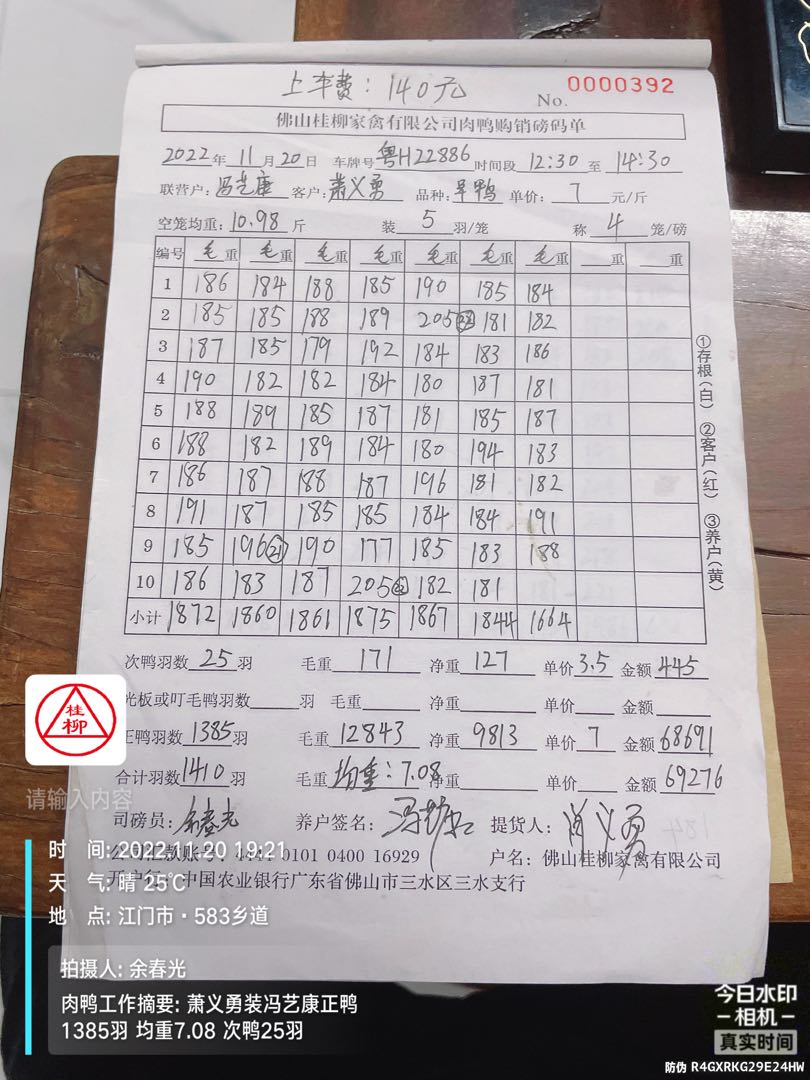 上车费：140元
No. 0000392
佛山桂柳家禽有限公司肉鸭购销磅码单
2022年11月20日 车牌号粤H22886时间段12:30至14:30
联营户：冯艺康 客户：萧义勇 品种：旱鸭 单价：7元/斤
空笼均重：10.98斤 装5羽/笼 称4笼/磅
编号 毛重 毛重 毛重 毛重 毛重 毛重 毛重 重 重
1 186 184 188 185 190 185 184
2 185 185 188 189 205 181 182
3 187 185 179 192 184 183 186
4 190 182 182 184 180 187 181
5 188 189 185 187 181 185 187
6 188 182 189 184 180 194 183
7 186 187 188 187 196 181 182
8 191 187 185 185 184 184 191
9 185 196 21 190 177 185 183 188
10 186 183 187 205 182 181
小计 1872 1860 1861 1875 1867 1844 1664
次鸭羽数25羽 毛重171 净重127 单价3.5 金额445
光板或叮毛鸭羽数 羽 毛重 净重 单价 金额
正鸭羽数1385羽 毛重12843 净重9813 单价7 金额68691
合计羽数1410羽 毛重均重：7.08净重 单价 金额69276
司磅员：余春光 养户签名：冯艺康 提货人：萧义勇
0101 0400 16929 户名：佛山桂柳家禽有限公司
中国农业银行广东省佛山市三水区三水支行
①存根(白) ②客户(红) ③养户(黄)
桂柳
请输入内容
时 间：2022.11.20 19:21
天 气：晴 25℃
地 点：江门市·583乡道
拍摄人：余春光
肉鸭工作摘要：萧义勇装冯艺康正鸭
1385羽 均重7.08 次鸭25羽
今日水印
相机
真实时间
防伪 R4GXRKG29E24HW